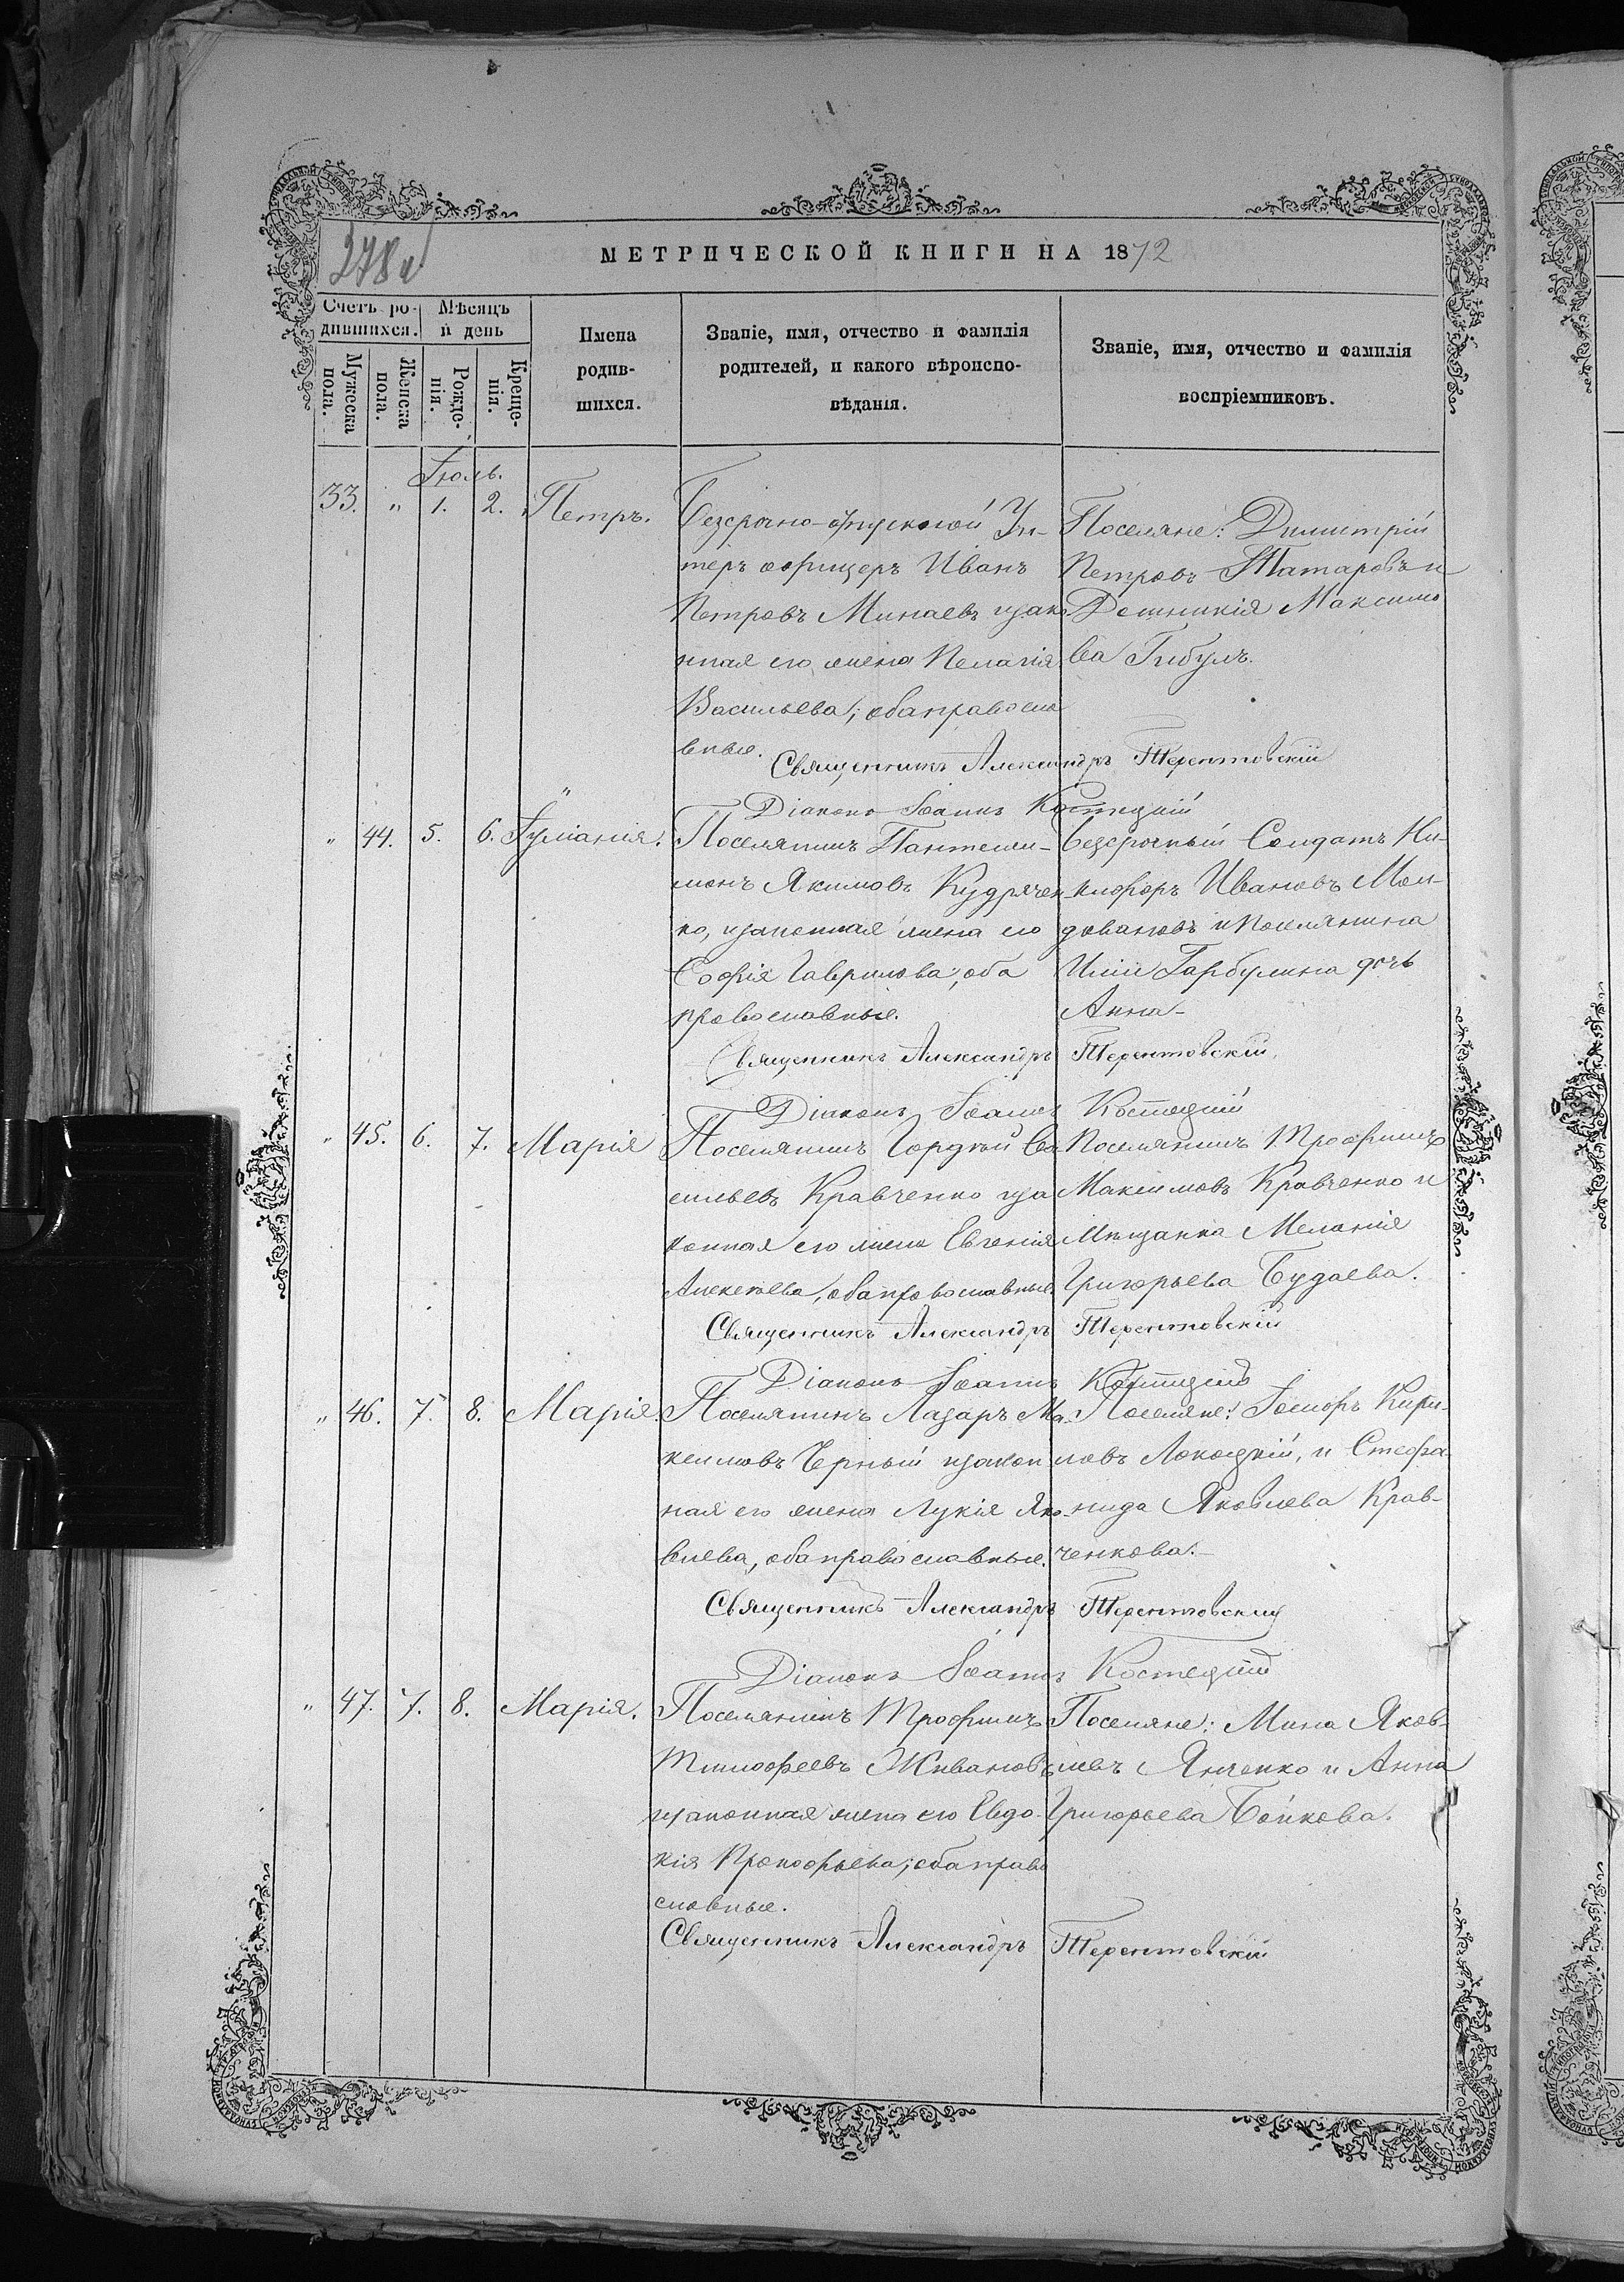 МЕТРИЧЕСКОЙ КНИГИ НА 1872
Счетъ ро-
дившихся.
Мѣсяцъ
и день
Мужеска
пола.
Женска
пола.
Рожде-
нія.
Креще-
нія.
Имена
родив-
шихся.
Званіе, имя, отчество и фамилія
родителей, и какого вѣроиспо-
вѣданія.
Званіе, имя, отчество и фамилія
воспріемниковъ.
Іюль.
33. " 1. 2. Петръ.
Безсрочно-отпускной Ун-
теръ офицеръ Иванъ
Петровъ Минаевъ изако
нная его жена Пелагія
Васильева; оба правосла
вные.
Поселяне: Димитрій
Петровъ Татаровъ и
Домникія Максимо
ва Гибулъ.
Священникъ Александръ Терентовскій
Діаконъ Іоаннъ Костецкій
" 44. 5. 6. Іуліанія.
Поселянинъ Пантели-
монъ Якимовъ Кудрячен
ко, изаконная жена его
Софія Гаврилова, оба
православные.
Безсрочный Солдатъ Ни-
кифоръ Ивановъ Мол-
довановъ и Поселянина
Иліи Гарбулина дочь
Анна-
Священникъ Александръ Терентовскій.
Діаконъ Іоаннъ Костецкій
" 45. 6. 7. Марія
Поселянинъ Гордѣй Ва
сильевъ Кравченко иза
конная его жена Евгенія
Алексѣева, оба православные.
Поселянинъ Трофимъ
Максимовъ Кравченко и
Мѣщанка Меланія
Григорьева Будаева.
Священникъ Александръ Терентовскій
Діаконъ Іоаннъ Костецкій
" 46. 7. 8. Марія.
Поселянинъ Лазаръ Ма-
ксимовъ Черный изакон
ная его жена Лукія Яко-
влева, оба православные.
Поселяне: Іосифъ Кири-
ловъ Локоцкій, и Стефа
нида Яковлева Крав-
ченкова.-
Священникъ Александръ Терентовскій
Діаконъ Іоаннъ Костецкій
" 47. 7. 8. Марія.
Поселянинъ Трофимъ
Тимофеевъ Живановъ
изаконная жена его Евдо-
кія Прокофьева; оба право
славные.
Поселяне: Мина Яков-
левъ Янченко и Анна
Григорьева Бойкова.
Священникъ Александръ Терентовскій